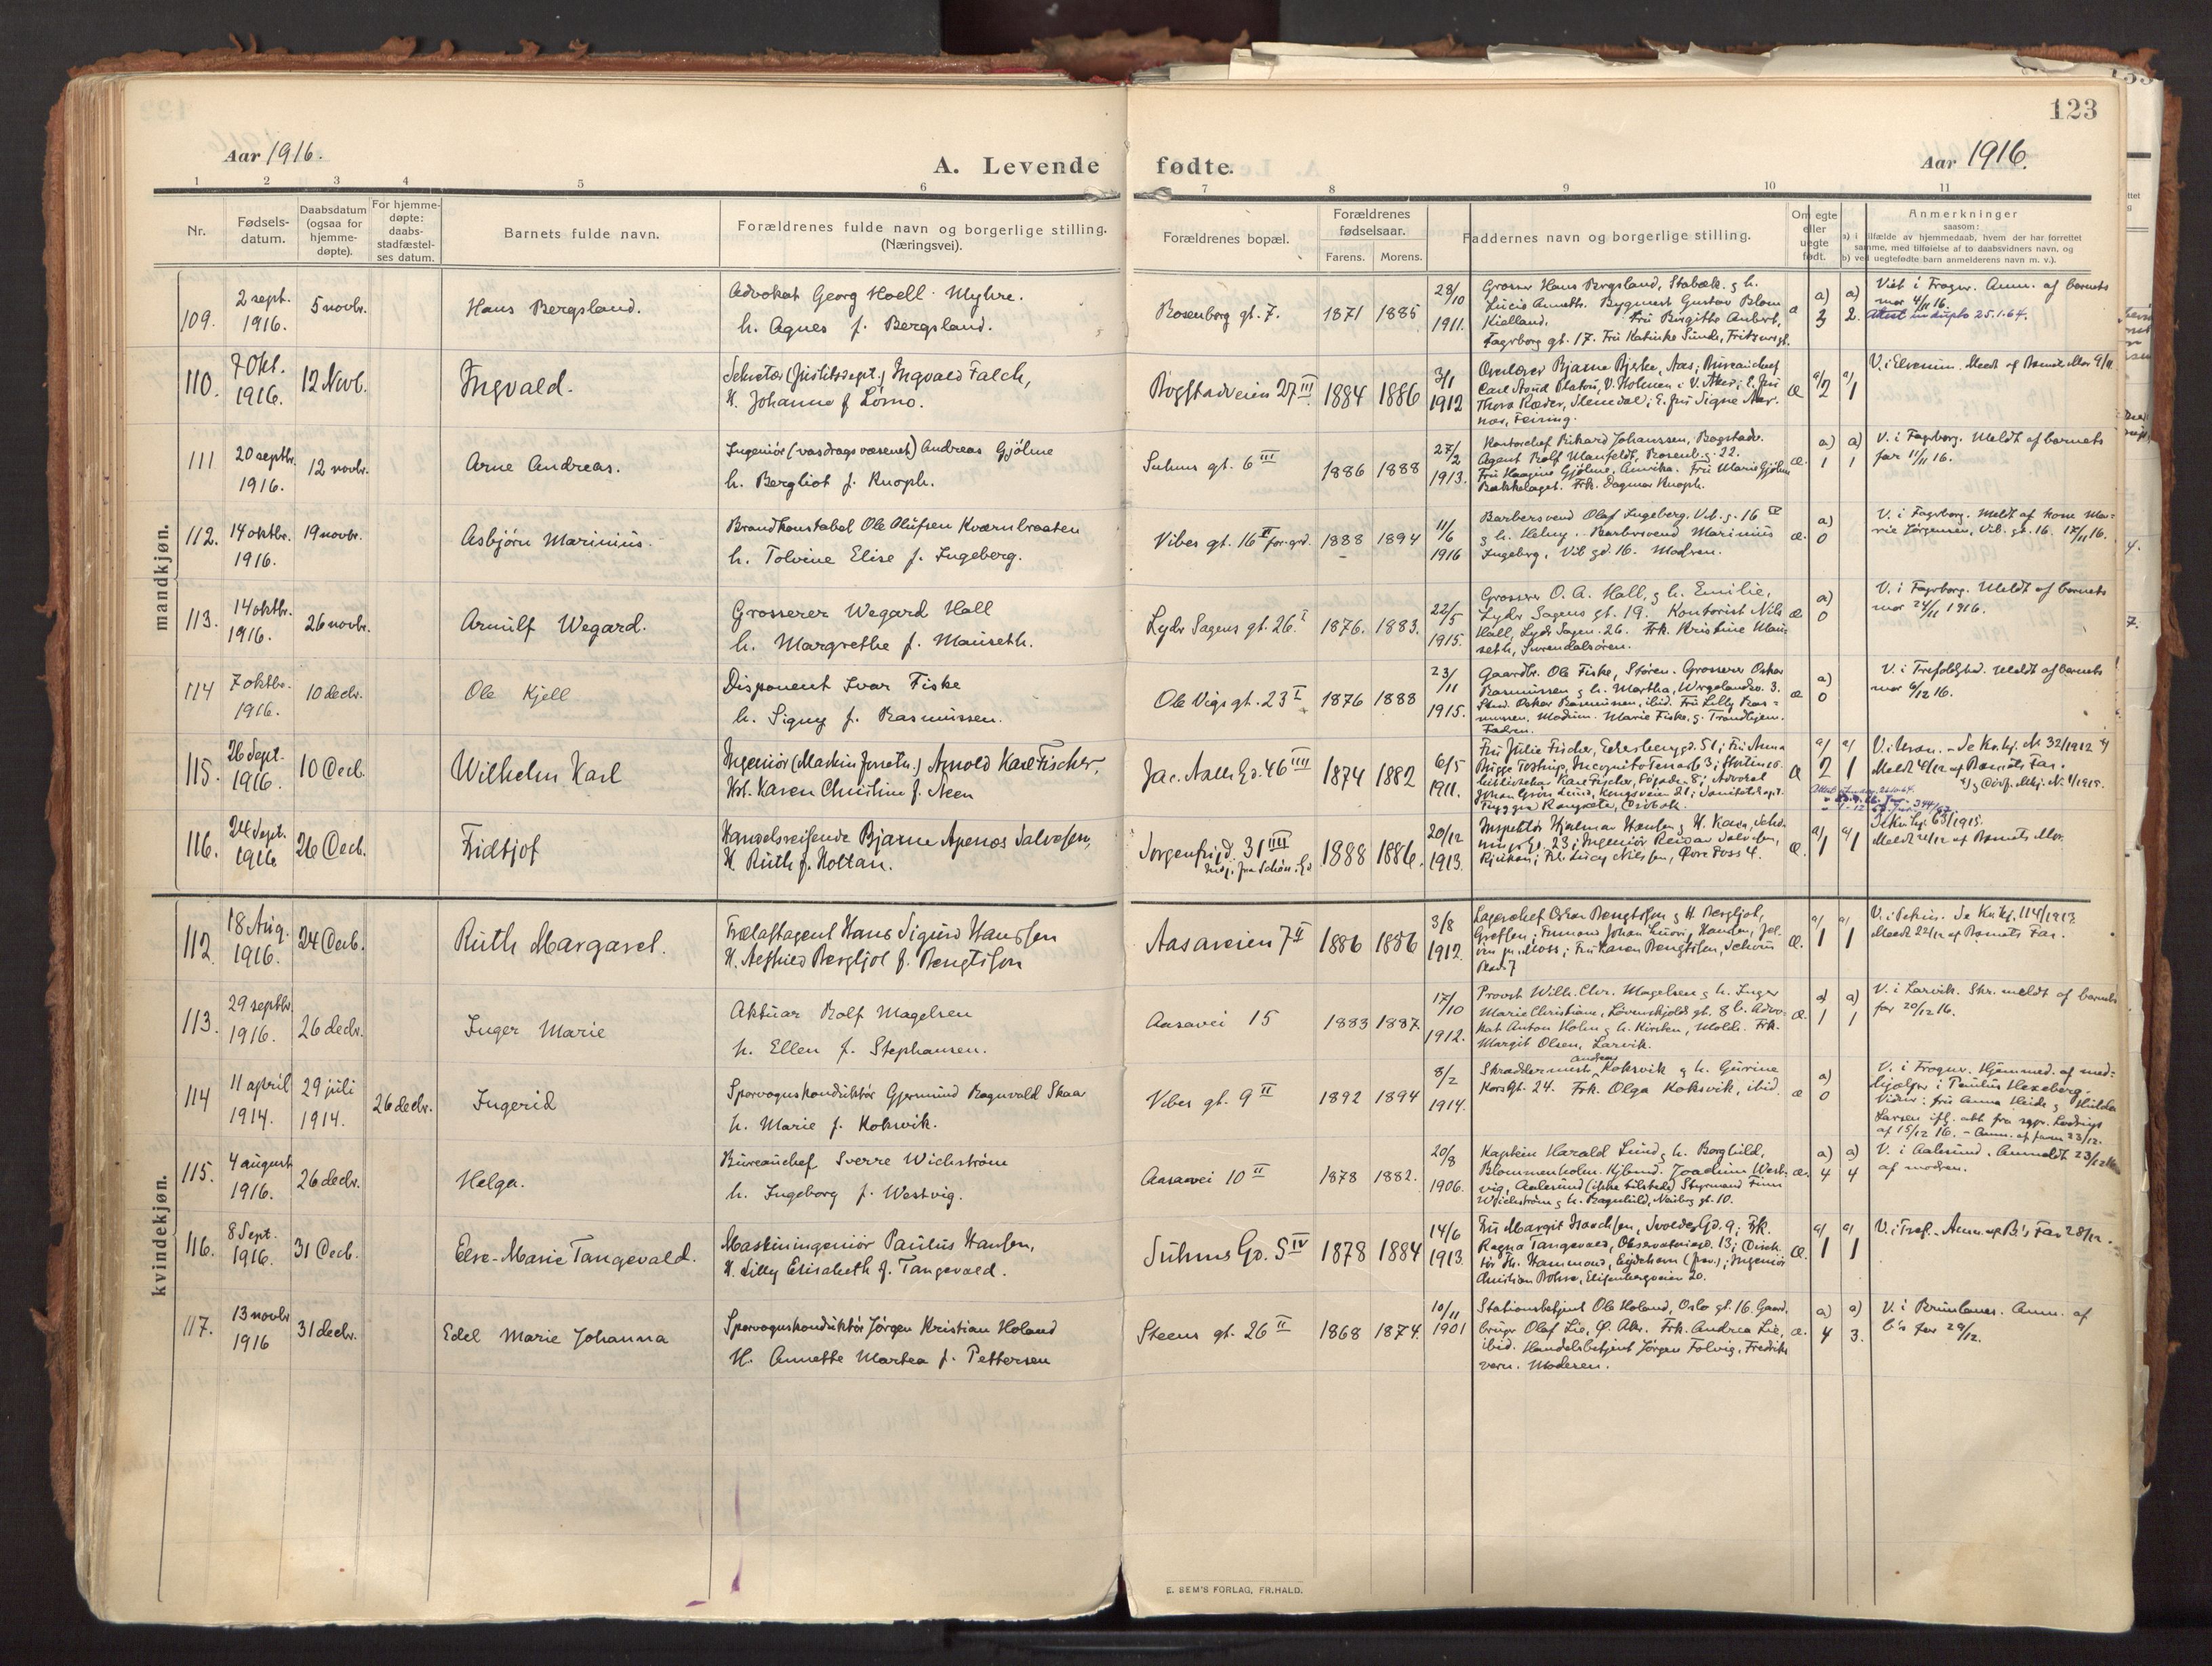 123
Aar 1916.
A. Levende fødte.
Aar 1916.
1 2 3 4 5 6 7 8 9 10 11
Nr.
Fødsels-
datum.
Daabsdatum
(ogsaa for
hjemme-
døpte).
For hjemme-
døpte:
daabs-
stadfæstel-
ses datum.
Barnets fulde navn.
Forældrenes fulde navn og borgerlige stilling.
(Næringsvei).
Forældrenes bopæl.
Forældrenes
fødselsaar.
Farens. Morens.
Faddernes navn og borgerlige stilling.
Om egte
eller
uegte
født.
Anmerkninger
saasom:
a) i tilfælde av hjemmedaab, hvem der har forrettet
samme, med tilføielse af to daabsvidners navn, og
b) ved uegtefødte barn anmelderens navn m. v.).
mandkjøn.
109.
2 sept.
1916.
5 novbr.
Hans Bergsland.
Advokat Georg Hoell Myhre.
h. Agnes f. Bergsland.
Rosenborg gt. 7.
1871 1885
28/10
1911.
Grosser Hans Bergsland, Stabæk, g h.
Lucie Anneth. Bygmest Gustav Blom
Kielland. Fru Birgitte Aubert,
Fagerborg gt. 17. Fru Katinka Sunde, Fritznersgt.
a) 3
a) 2.
Viet i Frogner. Anm. af barnets
mor 4/11 16.
Attest in duplo 25.1.64.
110.
7 Okt.
1916.
12 Novb.
Ingvald.
Sekretær (Justitsdept.) Ingvald Falch,
H. Johanne f. Lømo.
Bogstadveien 27 III
1884 1886
3/1
1912
Overlærer Bjarne Bjerke, Aas; Bureauchef
Carl Platou, V. Holmen i V. Aker; E. Fru
Thora Ræder, Stendal; E. Fru Signe
æ
a/ 2
a/ 1
V. i Elverum. Meldt af Barnets Mor 9/11
111
20 septbr.
1916.
12 novbr.
Arne Andreas.
Ingeniør (vasdragsvæsenet) Andreas Gjølme
h. Bergliot f. Knoph.
Suhms gt. 6 III
1886 1888
27/2
1913.
Kontorchef Rikard Johanssen, Bogstadv.
Agent Rolf Manfeldt, Rosenb. g. 22.
Fru Gjølme, Amerika. Fru Marie Gjølme
Bækkelaget. Frk. Dagmar Knoph.
æ.
a) 1
a) 1
V. i Fagerborg. Meldt af barnets
far 11/11 16.
112.
14 oktbr.
1916.
19 novbr.
Asbjørn Marinius.
Brandkonstabel Ole Olufsen Kværnbraaten
h. Tolvine Elise f. Ingeberg.
Vibes gt. 16 II forgrd.
1888 1894
11/6
1916
Barbersvend Olaf Ingeberg. Vib. g. 16 IV
g h. Helny. Barbersvend Marinius
Ingeberg, Vib gd. 16. Modren.
æ.
a) 0
V. i Fagerborg. Meldt af kone Ma-
rie Jørgensen, Vib. gt. 16. 17/11 16.
113.
14 oktbr.
1916.
26 novbr.
Arnulf Wegard.
Grosserer Wegard Hall
h. Margrethe f. Mauseth.
Lyder Sagens gt. 26. I
1876. 1883.
22/5
1915.
Grosserer O. A. Hall, g h. Emilie,
Lyder Sagens gt. 19. Kontorist Nils
Hall, Lyder Sagen. 26. Frk. Kristine Mau-
seth, Surendalsøren.
æ
a) 0
V. i Fagerborg. Meldt af barnets
mor 24/11 1916.
114
7 oktbr.
1916.
10 decbr.
Ole Kjell
Disponent Ivar Fiske
h. Signy f. Rasmussen.
Ole Vigs gt. 23 I
1876 1888
23/11
1915.
Gaardbr. Ole Fiske, Støren. Grosserer Oskar
Rasmussen g h. Martha, Wergelandsv. 3.
Stud. Oskar Rasmussen, ibid. Fru Lilly Ras-
mussen, Modum. Marie Fiske, g. Trondhjem.
Fadren.
æ
a) 0
V. i Trefoldghed. Meldt af barnets
mor 6/12 16.
115.
26 Sept.
1916.
10 Decb.
Wilhelm Karl
Ingeniør Arnold Karl Fischer,
Karen Christine f. Neen
Jac. Aalls Gd. 46 IIII
1874 1882
6/5
1911.
Fru Julie Fischer, Eckersbergsgd. 51; Fru Anna
Bugge Tostrup, Incognito Terrasse 3;
bibliothekar Karl Fischer, 8; Advokat
Johan Grøn Lund, Kongsveien 21;
Trygge Ranzæta, Drøbak.
æ
a/ 2
a/ 1
V. i Se Kirkj. Nr 32/1912
Meldt 4/12 af Barnets Far.
116.
24 Sept.
1916
26 Decb.
Fridtjof
Handelsreisende Bjarne Apenæs Salvesen,
H. Ruth f. Holtan.
Sorgenfrigd. 31 IIII
1888 1886.
20/12
1913.
Inspektør Hjalmar Hansen g H. Karen,
23; Ingeniør Reidar Salvesen,
Rjukan; Frk. Lucy Nilssen, Øvre Foss 4.
æ.
a/ 1
a/ 1
Se Kirkj. 63/1915.
Meldt af Barnets Mor.
kvindekjøn.
112
18 Aug.
1916.
24 Decb.
Ruth Margaret.
Trælastagent Hans Sigurd Hanssen
H. Bergljot f. Bengtsson
Aasaveien 7 II
1886 1886
3/8
1912.
Lagerchef Oskar Bengtsson g H. Bergljot,
Grefsen; Formand Johan Ludvig Hansen, Jel-
øen pr. Moss; Fru Karen Bengtssen,
æ.
a/ 1
a/ 1
V. i Petrus. Se Kirkj. 114/1913
Meldt 22/12 af Barnets Far.
113.
29 septbr
1916.
26 decbr.
Inger Marie
Aktuar Rolf Magelsen
h. Ellen f. Stephansen.
Aasavei 15
1883 1887
17/10
1912.
Provst Wilh. Chr. Magelsen g h. Inger
Marie Christiane, Løvenskjolds gt. 8 b. Advo-
kat Anton Holm g h. Kirsten, Molde. Frk.
Margit Olsen, Larvik.
æ.
a) 1
a) 1
V. i Larvik. Skr. meldt af barnets
far 20/12 16.
114
11 april
1914.
29 juli
1914.
26 decbr.
Ingerid
Sporvognskonduktør Gjermund Ragnvald Skaar
h. Marie f. Koksvik.
Vibes gt. 9 II
1892 1894
8/2
1914.
Skræddermest. Andreas Koksvik g h. Gurine
Korsgt. 24. Frk. Olga Koksvik, ibid.
æ
a) 0
V. i Frogner. Hjemmed. af med-
hjælper i Paulus Hexeberg.
Vidner: fru Anna Heide g Hulda
Larsen ifl. att. fra sgpr. Lodrup
af 15/12 16. - Anm. af faren 23/12.
115.
4 august
1916.
26 decbr.
Helga.
Bureauchef Sverre Wichstrøm
h. Ingeborg f. Westvig.
Aasavei 10 II
1878 1882.
20/8
1906.
Kaptein Harald Lund g h. Borghild,
Blommenholm. Kjbmd. Joachim West-
vig, Aalesund (ikke tilstede) Styrmand Finn
Wichstrøm g h. Ragnhild, Neuberg gt. 10.
æ.
a) 4
a) 4
V. i Aalesund. Anmeldt 23/12 16
af modren.
116.
8 Sept.
1916.
31 Decb.
Else-Marie Tangevald.
Maskiningeniør Paulus Hansen,
H. Lilly Elisabeth f. Tangevald.
Suhms Gd. 5 IV
1878 1884
14/6
1913.
Fru Margit Isachsen, Svolder Gd. 9; Frk.
Ragna Tangevald, Observatoriegd. 13; Direk-
tør Th. Hammond, Eydehavn (frav.); Ingeniør
Christian Bohse, Elisenbergveien 20.
æ.
a/ 1
a/ 1
V. i Tref. Anm. af B's Far 28/12.
117.
13 novbr
1916
31 decbr.
Edel Marie Johanna
Sporvognskonduktør Jørgen Kristian Holand
H. Annette Martea f. Pettersen
Steens gt. 26 II
1868 1874.
10/11
1901
Stationsbetjent Ole Holand, Oslo gt. 16. Gaard-
bruger Olaf Lie, Ø. Aker. Frk. Andrea Lie,
ibid. Handelsbetjent Jørgen Folvig, Fredriks-
vern. Moderen.
æ.
a) 4
a) 3.
V. i Brunlanes. Anm. af
b's far 29/12.
E. SEM'S FORLAG, FR.HALD.